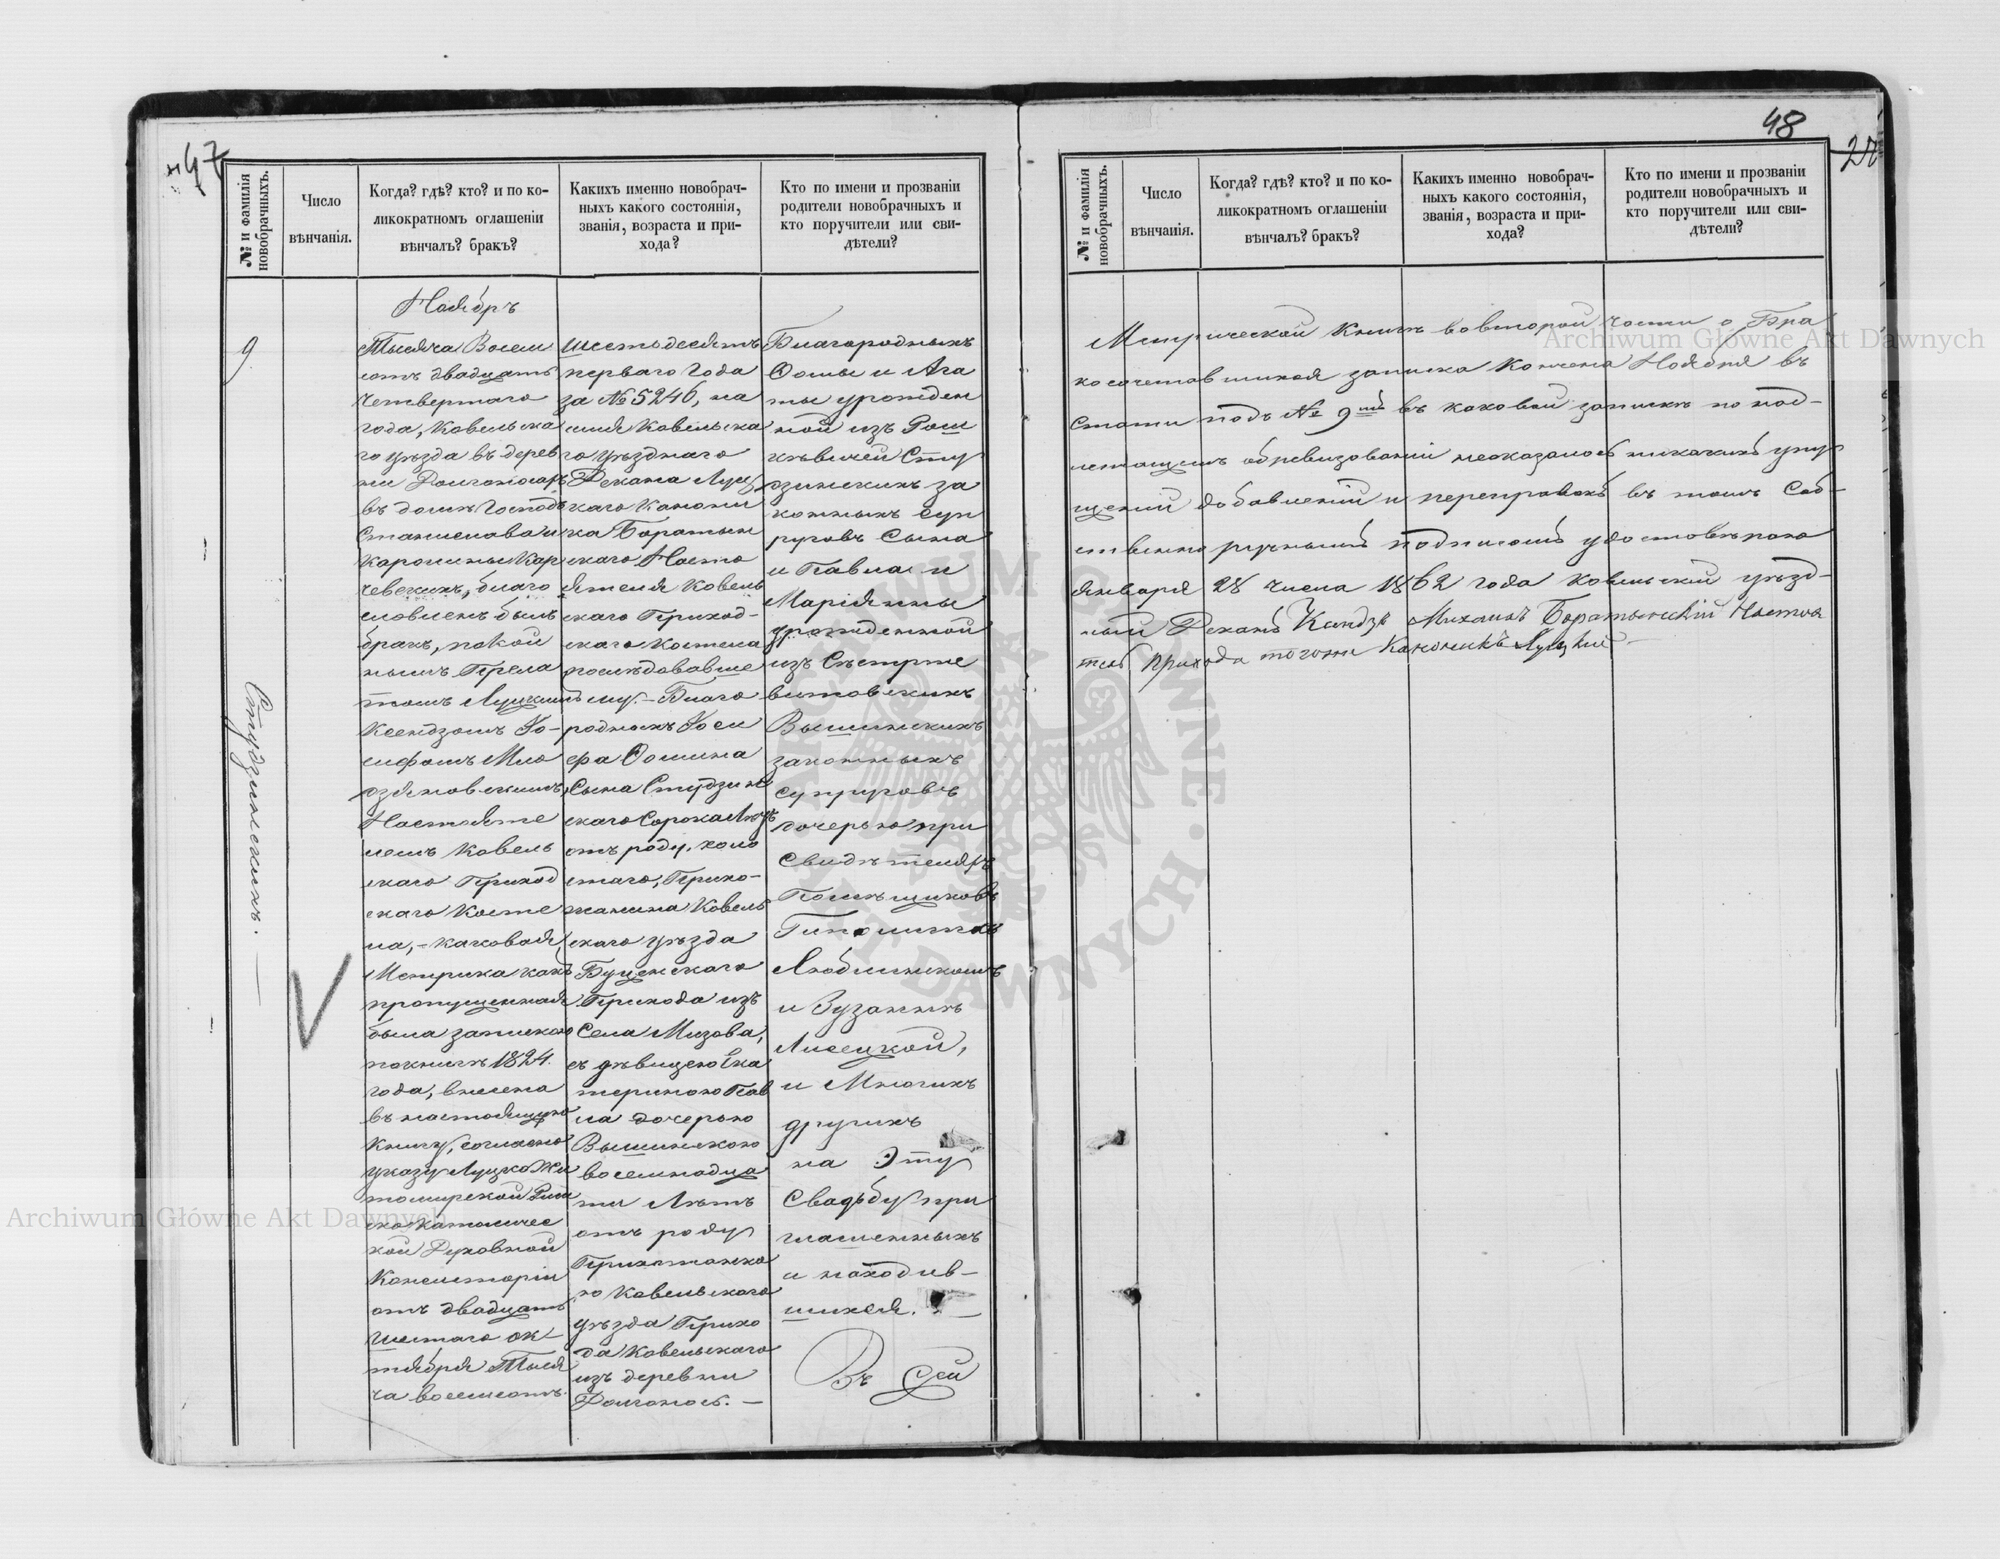 47
№ и фамилія новобрачныхъ.
Число вѣнчанія.
Когда? гдѣ? кто? и по ко-
ликократномъ оглашеніи
вѣнчалъ? бракъ?
Какихъ именно новобрач-
ныхъ какого состоянія,
званія, возраста и при-
хода?
Кто по имени и прозванію
родители новобрачныхъ и
кто поручители или сви-
дѣтели?
9
Студзинскихъ. —
Ноябрь
Тысяча Восем
сотъ двадцать
четвертаго
года, Ковельска
го уѣзда въ дерев
ни Долгоносахъ
въ домѣ Господъ
Станислава и
Каролины Кар
чевскихъ, благо
словленъ былъ
бракъ, покой
нымъ Прела
томъ Луцкимъ
Ксендзомъ Іо-
сифомъ Мло
дзяновскимъ,
Настояте
лемъ Ковель
скаго Приход
скаго Косте
ла, – каковая
Метрика какъ
пропущенная
была запискою
по книгѣ 1824.
года, внесена
въ настоящую
книгу, согласно
указу Луцко Жи
томирской Рим
ско Католичес
кой Духовной
Консисторіи
отъ двадцать
шестаго ок-
тября Тыся
ча восемсотъ
шестьдесятъ
перваго года
за № 5246, на
имя Ковельска
го уѣзднаго
Декана Луц
каго Канони
ка Боратын
скаго Насто
ятеля Ковель
скаго Приход-
скаго Костела
послѣдовавше
му. – Благо
родныхъ Іоси
фа Ѳомина
Сына Студзин
скаго Сорока Лѣтъ
отъ роду, холо
стаго, Прихо-
жанина Ковель
скаго уѣзда
Буценскаго
Прихода изъ
Села Мизова,
съ дѣвицею Ека
териною Пав
ла дочерью
Вышинскою
восемнадца
ти Лѣтъ
отъ роду
Прихожанко
ю Ковельскаго
уѣзда Прихо
да Ковельскаго
изъ деревни
Долгоносъ. —
Благородныхъ
Ѳомы и Ага
ты урожден
ной изъ Рош
кѣвичей Сту
дзинскихъ за
конныхъ суп
руговъ Сына
и Павла и
Маріянны
урожденной
изъ
Вышинскихъ
законныхъ
супруговъ
дочерью при
Свидѣтеляхъ
Помѣщиковъ
Гиполитѣ
Люблинскомъ
и Зузаннѣ
Лисецкой,
и Многихъ
другихъ
на Эту
Свадьбу при
глашенныхъ
и находив-
шихся. —
Въ Сей
48
27
№ и фамилія новобрачныхъ.
Число вѣнчанія.
Когда? гдѣ? кто? и по ко-
ликократномъ оглашеніи
вѣнчалъ? бракъ?
Какихъ именно новобрач-
ныхъ какого состоянія,
званія, возраста и при-
хода?
Кто по имени и прозваніи
родители новобрачныхъ и
кто поручители или сви-
дѣтели?
Метрической Книгѣ во второй части о Бра
косочетавшихся записка Кончена Ноября въ
Статьи подъ № 9мъ въ каковой запискѣ по над-
лежащемъ обревизованіи неоказалось никакихъ упу
щеній добавленій и переправокъ въ томъ Соб-
ственно ручнымъ подписомъ удостовѣряю
января 28 числа 1862 года Ковельскій уѣзд-
ный Деканъ Ксендзъ Михаилъ Боратынскій Настоя
тель прихода тогожъ Каноникъ Луцкій —
Archiwum Główne Akt Dawnych
Archiwum Główne Akt Dawnych
ARCHIWUM GŁÓWNE AKT DAWNYCH